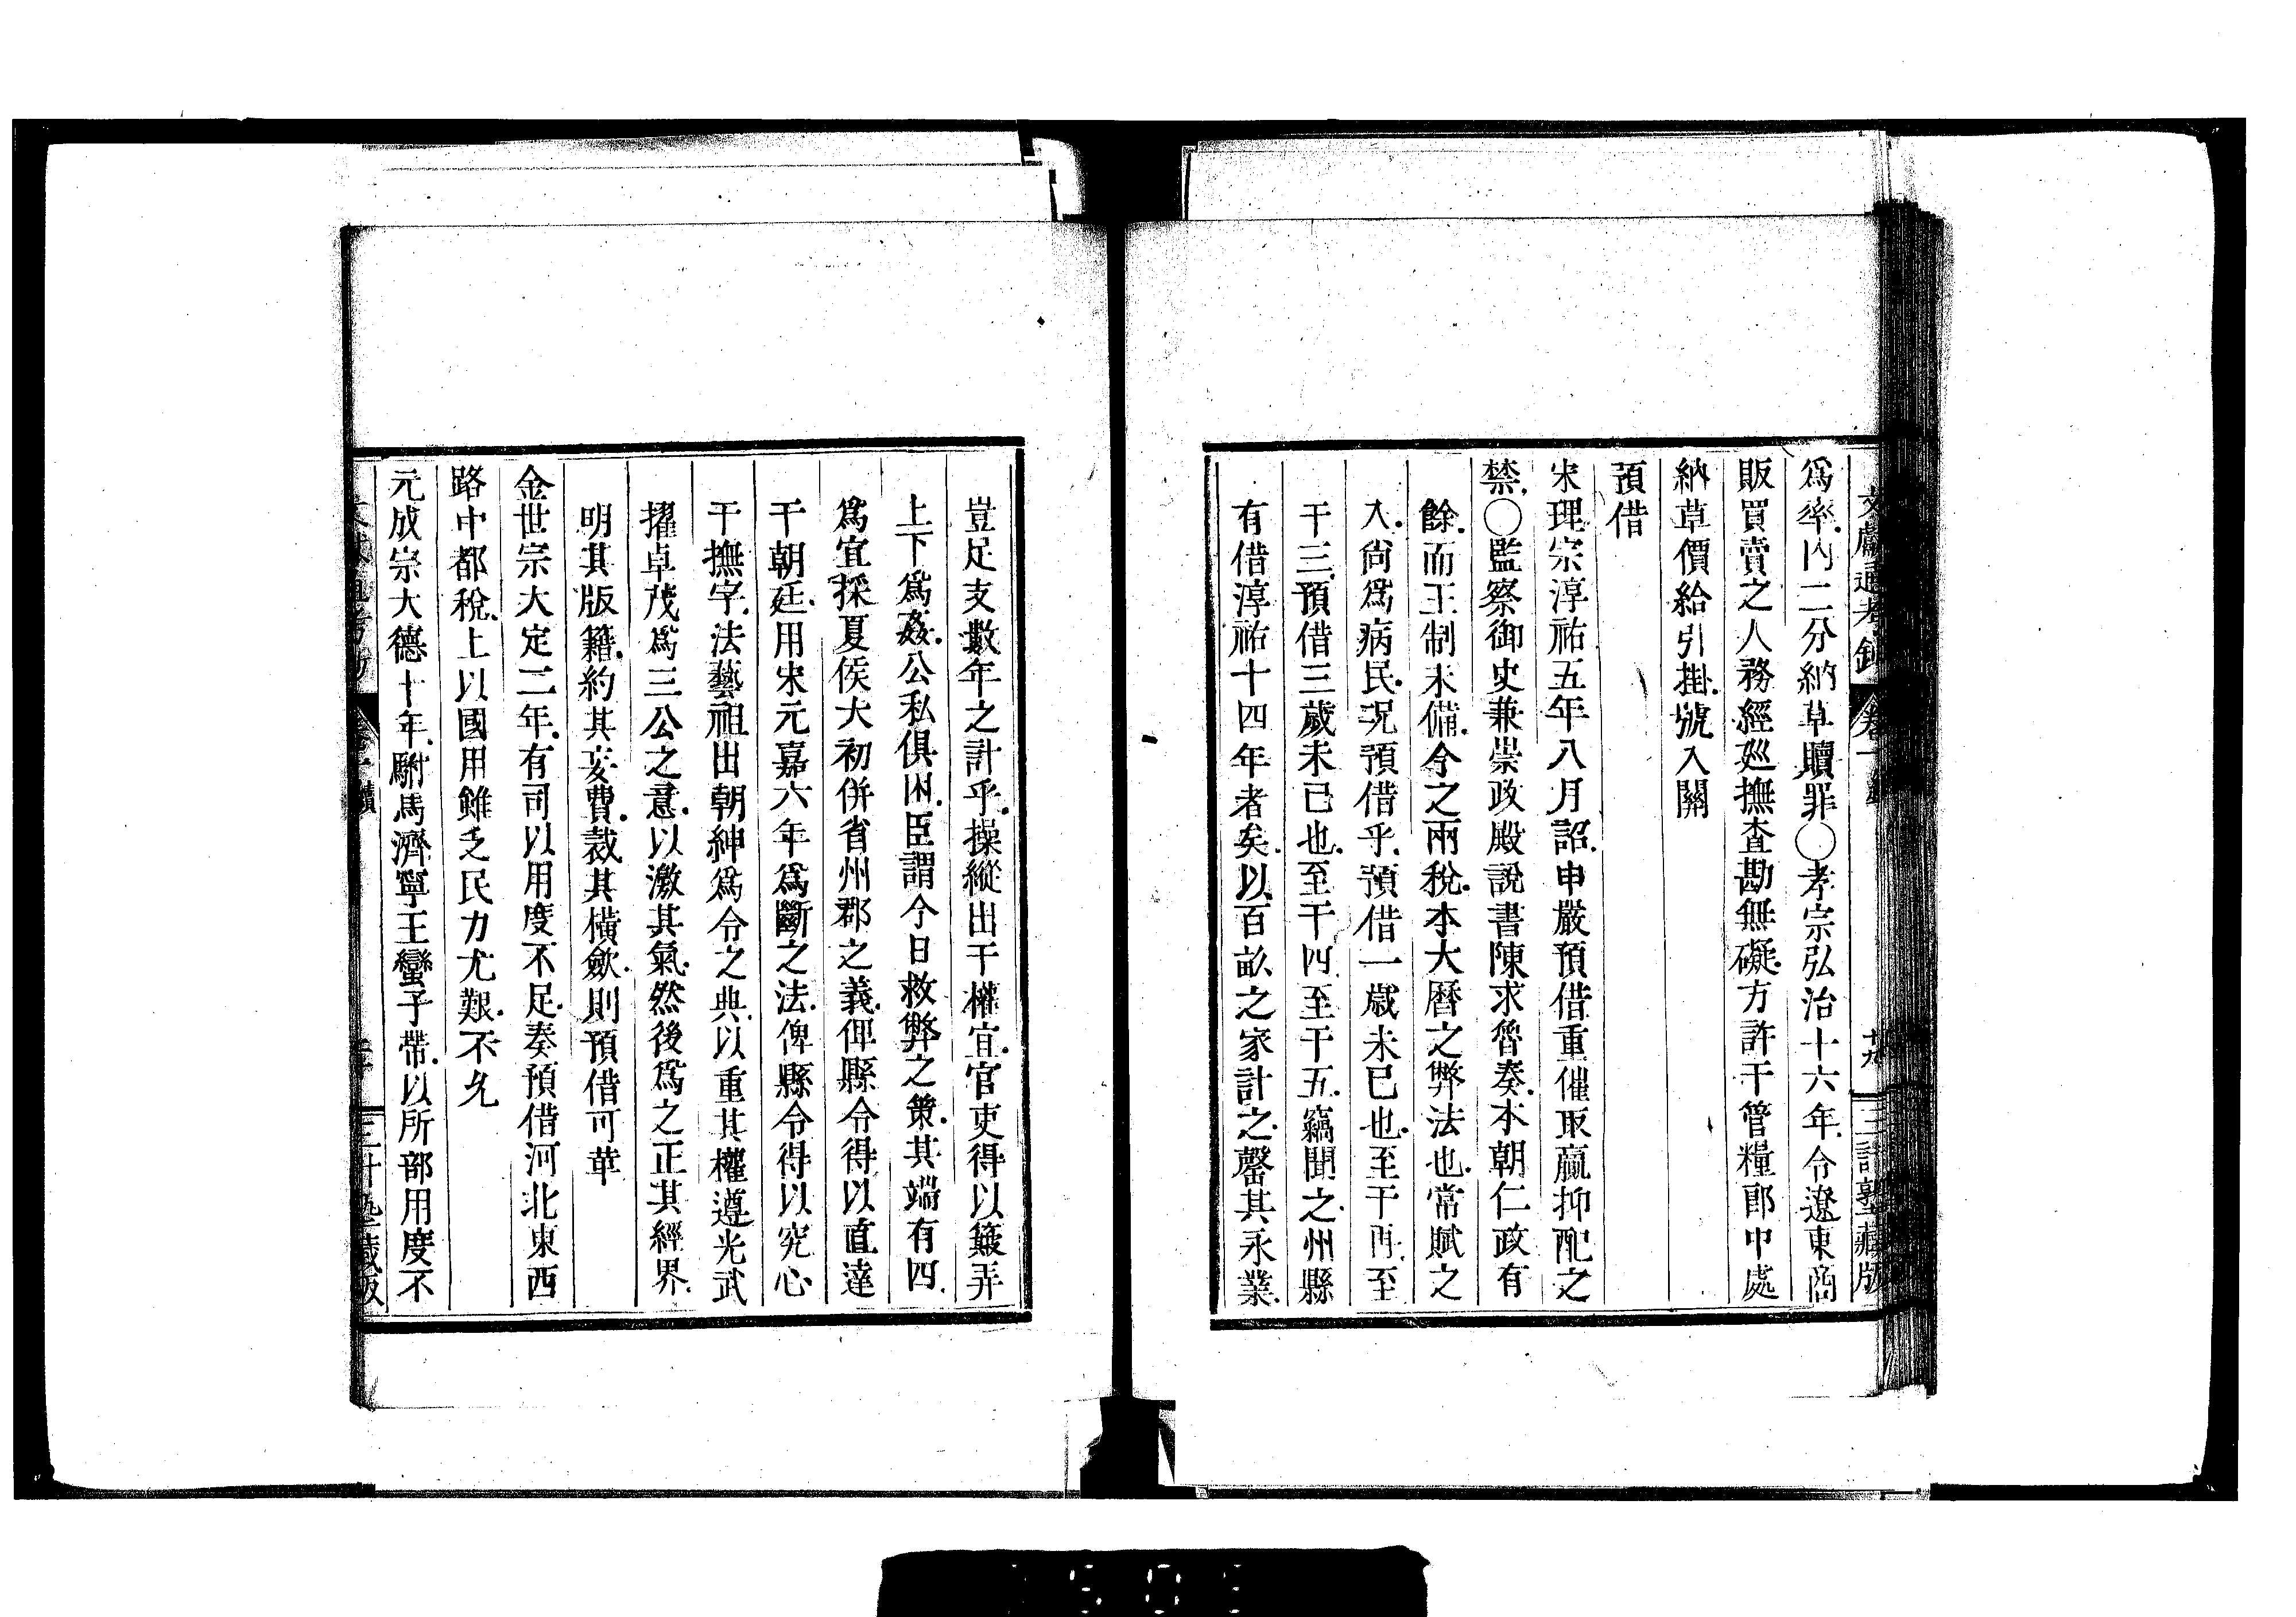 爲率內二分納草贖罪○孝宗弘治十六年令遼東商
販買賣之人務經廵撫查勘無礙方許干管糧郎中處
納草價給引掛號入關
預借
宋理宗淳祐五年八月詔申嚴預借重催取贏抑配之
禁○監察御史兼崇政殿說書陳求魯奏本朝仁政有
餘而王制未備今之兩稅本大曆之弊法也常賦之
入尚爲病民况預借乎預借一歲未已也至干再至
干三預借三歲未已也至干四至干五竊聞之州縣
有借淳祐十四年者矣以百畝之家計之罄其永業
豈足支數年之計乎操縱出干權宜官吏得以簸弄
上下爲姦公私俱困臣謂今日救弊之策其端有四
爲宜採夏侯大初併省州郡之義俾縣令得以直達
干朝廷用宋元嘉六年爲斷之法俾縣令得以究心
干撫字法藝祖出朝紳爲令之典以重其權遵光武
擢卓茂爲三公之意以激其氣然後爲之正其經界
明其版籍約其妄費裁其橫歛則預借可革
金世宗大定二年有司以用度不足奏預借河北東西
路中都稅上以國用雖乏民力尤艱不允
元成宗大德十年駙馬濟寧王蠻子帶以所部用度不